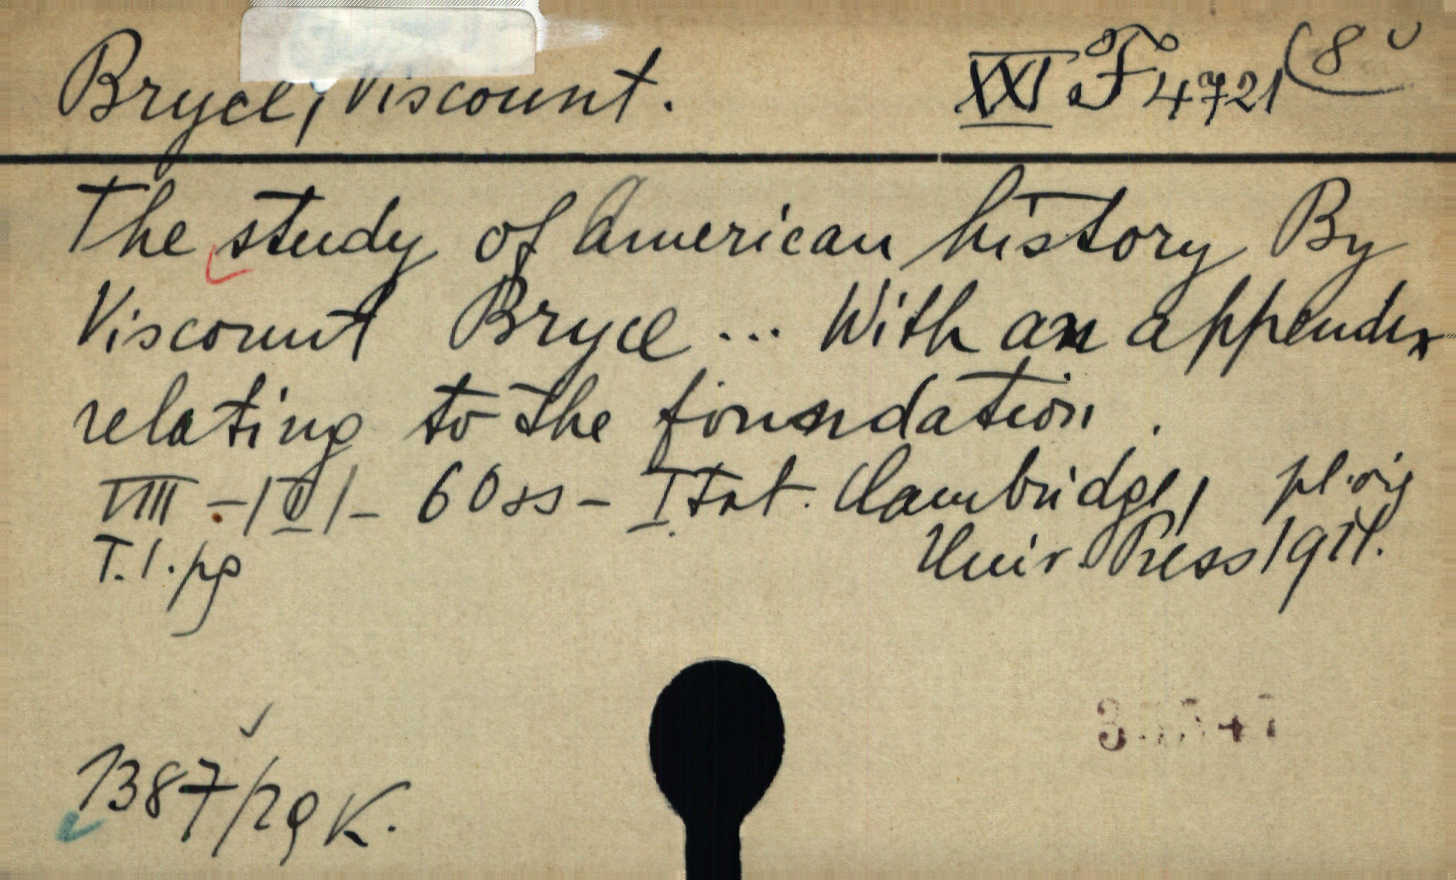 Bryce, Viscount. XXI F 4721 (8
The study of American history By
Viscount Bryce ... With an appendix
relating to the foundation.
VIII - 60 ss - I Cambridge,
T. 1. pg Univ. Press 19
1387/29 K.